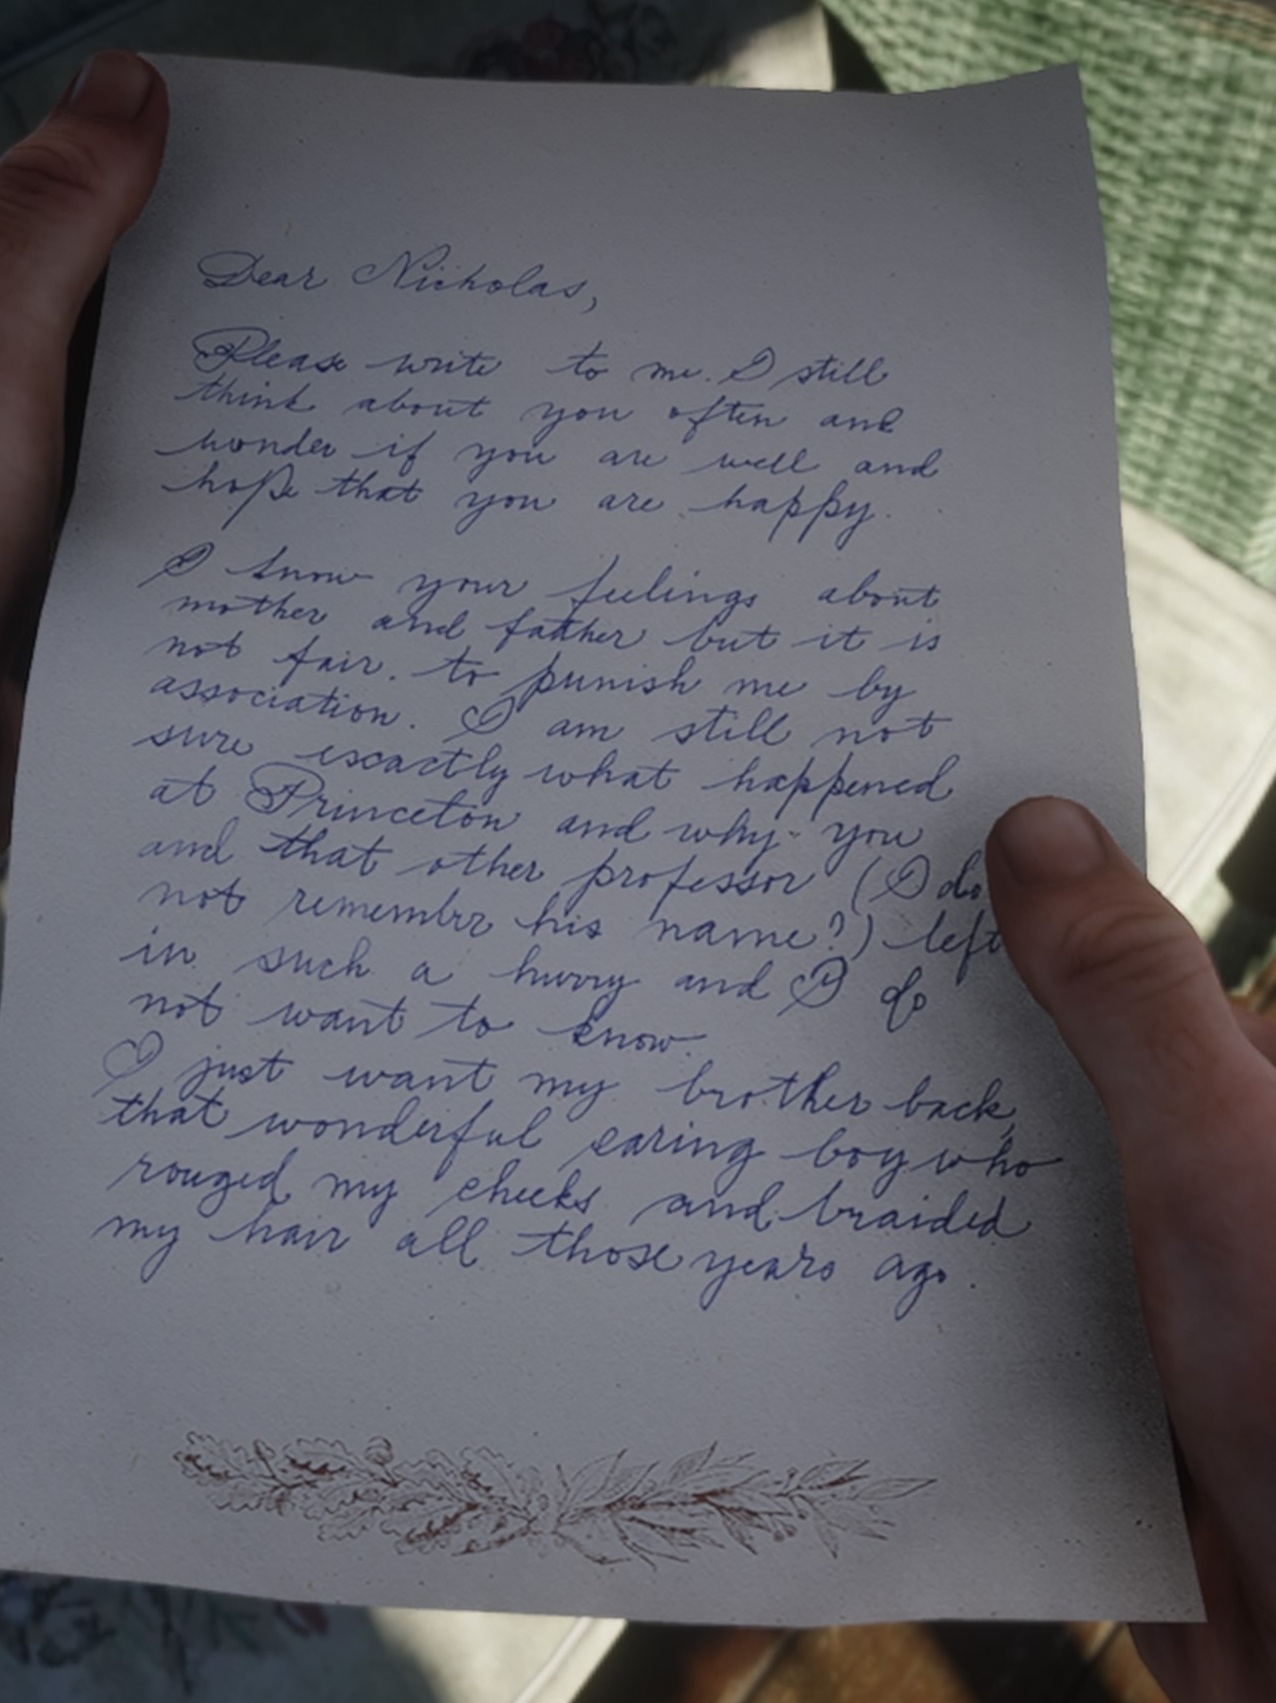 Dear Nicholas,
Please write to me. I still
think about you often and
wonder if you are well and
hope that you are happy.
I know your feelings about
mother and father but it is
not fair. to punish me by
association. I am still not
sure escactly what happened
at Princeton and why you
and that other professor (I do
not remembrr his name?) left
in such a hurry and I do
not want to know.
I just want my brother back,
that wonderful caring boy who
rouged my cheeks and braided
my hair all those years ago.